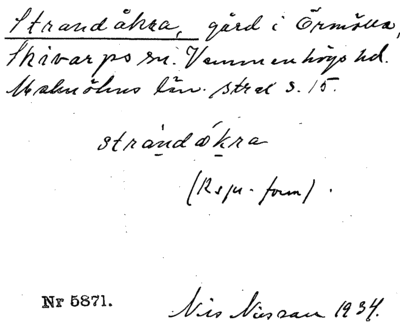 Strandåkra, gård i Örmölla,
Skivarps sn. Vemmenhögs hd.
Malmöhus län. strax s. 15.
strandåkra
(Rspr.-form).
Nr 5871. Nils Nilsson 1934.